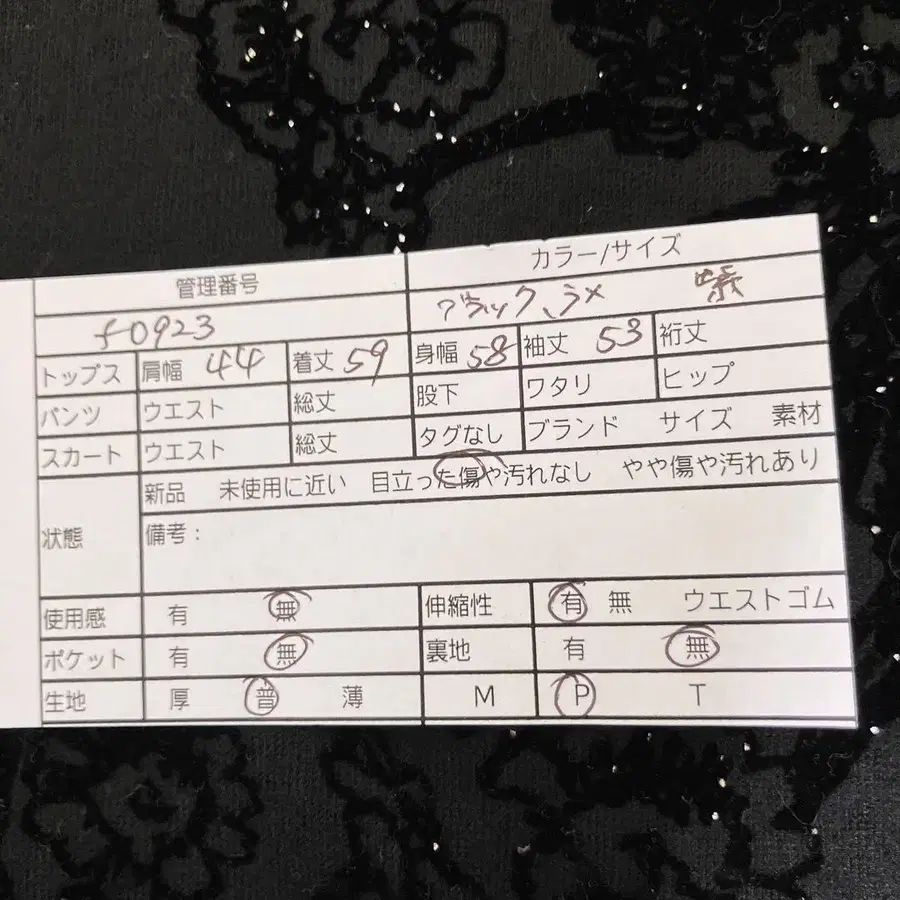 管理番号 カラー/サイズ
f0923 ブラック、ラメ 紫
トップス 肩幅 44 着丈 59 身幅 58 袖丈 53 裄丈
パンツ ウエスト 総丈 股下 ワタリ ヒップ
スカート ウエスト 総丈 タグなし ブランド サイズ 素材
状態 新品 未使用に近い 目立った傷や汚れなし やや傷や汚れあり
備考：
使用感 有 無 伸縮性 有 無 ウエストゴム
ポケット 有 無 裏地 有 無
生地 厚 普 薄 M P T